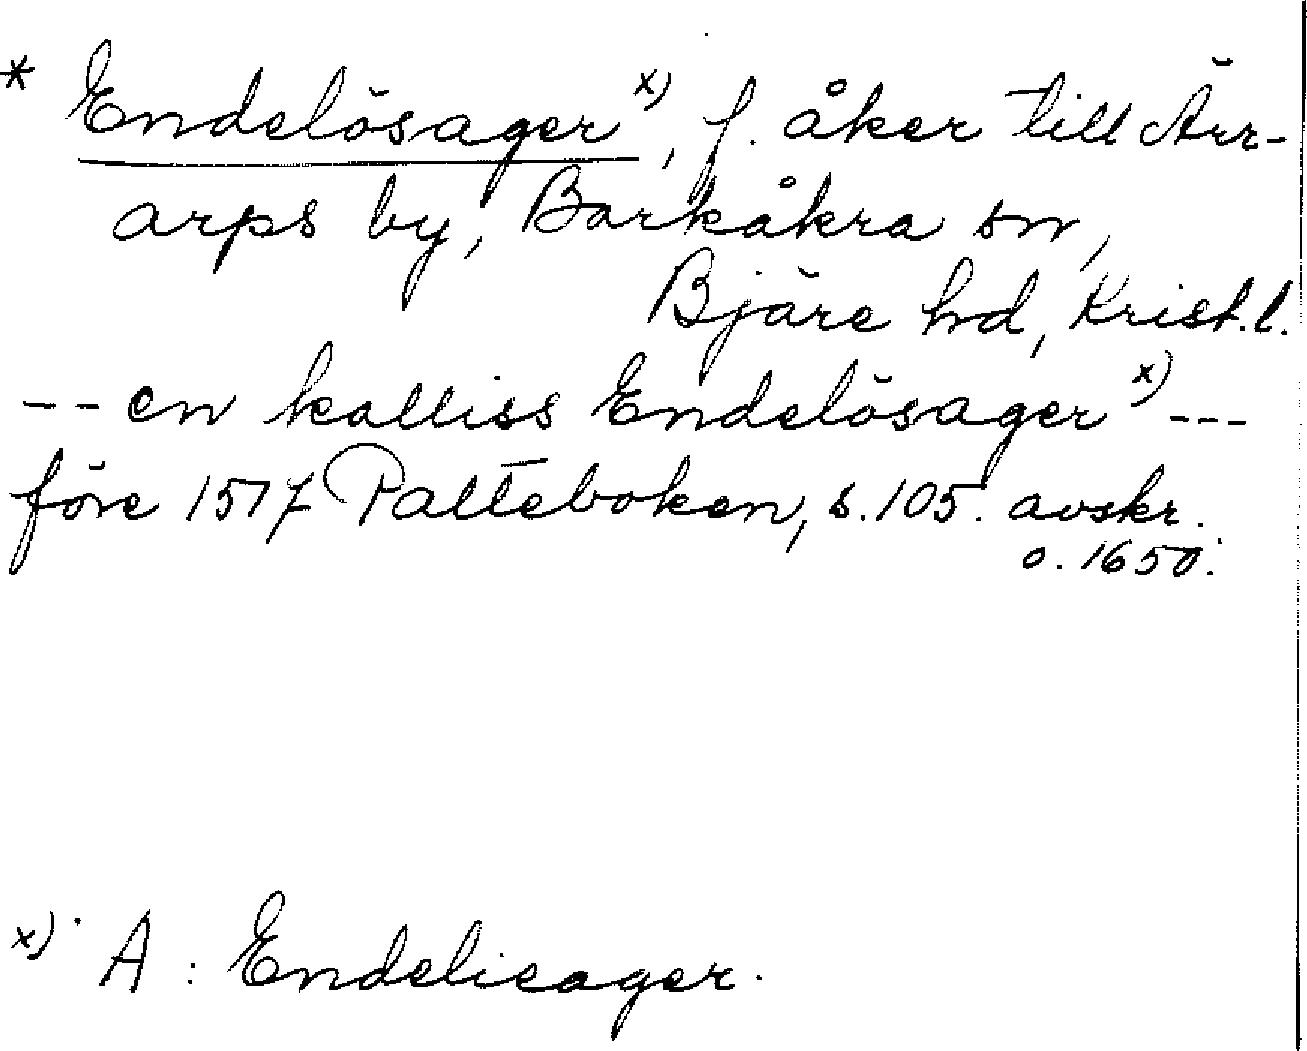 * Endelösager x), f. åker till Ärr-
arps by, Barkåkra sn,
Bjäre hd, Krist.l.
-- en kalliss Endelösager x) ---
före 1517 Palteboken, s. 105. avskr.
o. 1650.
x) A: Endelieager.